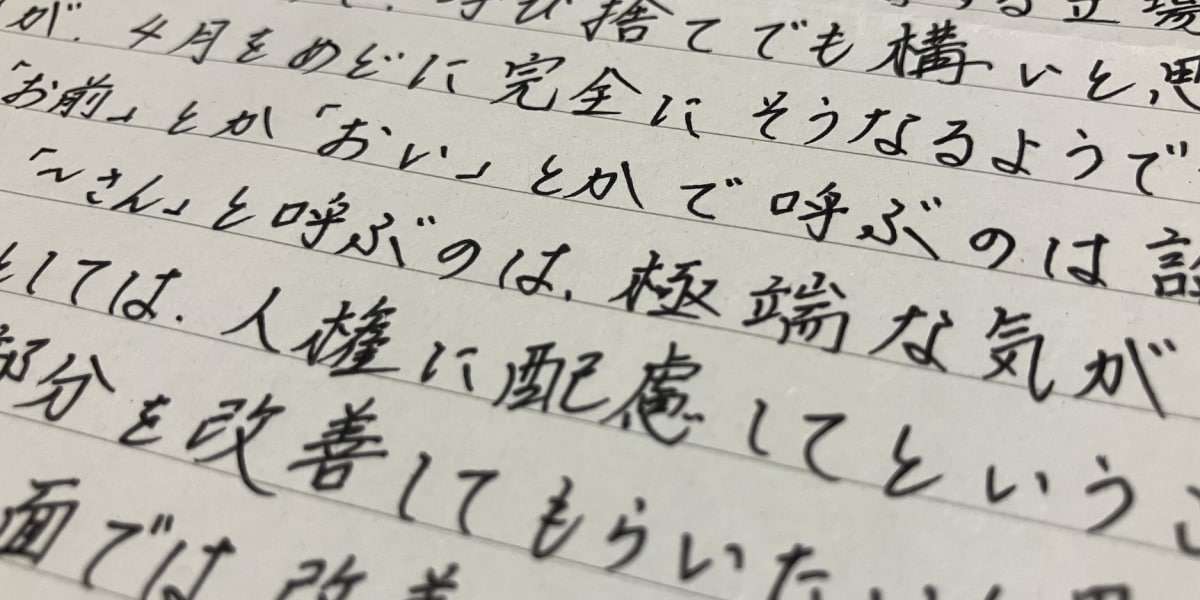 呼び捨てでも構いと思
が、4月をめどに完全にそうなるようで
「お前」とか「おい」とかで呼ぶのは
「～さん」と呼ぶのは、極端な気が
しては、人権に配慮してという
部分を改善してもらいたい
面では改善